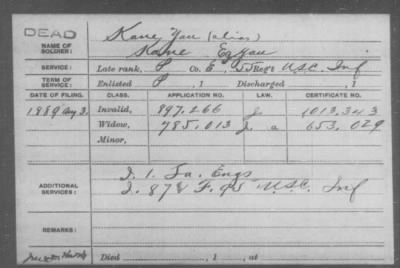 DEAD
NAME OF SOLDIER: Kane, You (alias)
Kane Ez You
SERVICE: Late rank, P Co. E, 55 Reg't U.S.C. Inf
TERM OF SERVICE: Enlisted P, 1 Discharged , 1
DATE OF FILING. CLASS. APPLICATION NO. LAW. CERTIFICATE NO.
1889 Aug 3. Invalid, 897,266 J 1013,343
Widow, 785,013 J. a 653,029
Minor,
ADDITIONAL SERVICES: J. 1. La. Engs
J. 87 & F. 95 U.S.C. Inf
REMARKS:
Died , 1 , at